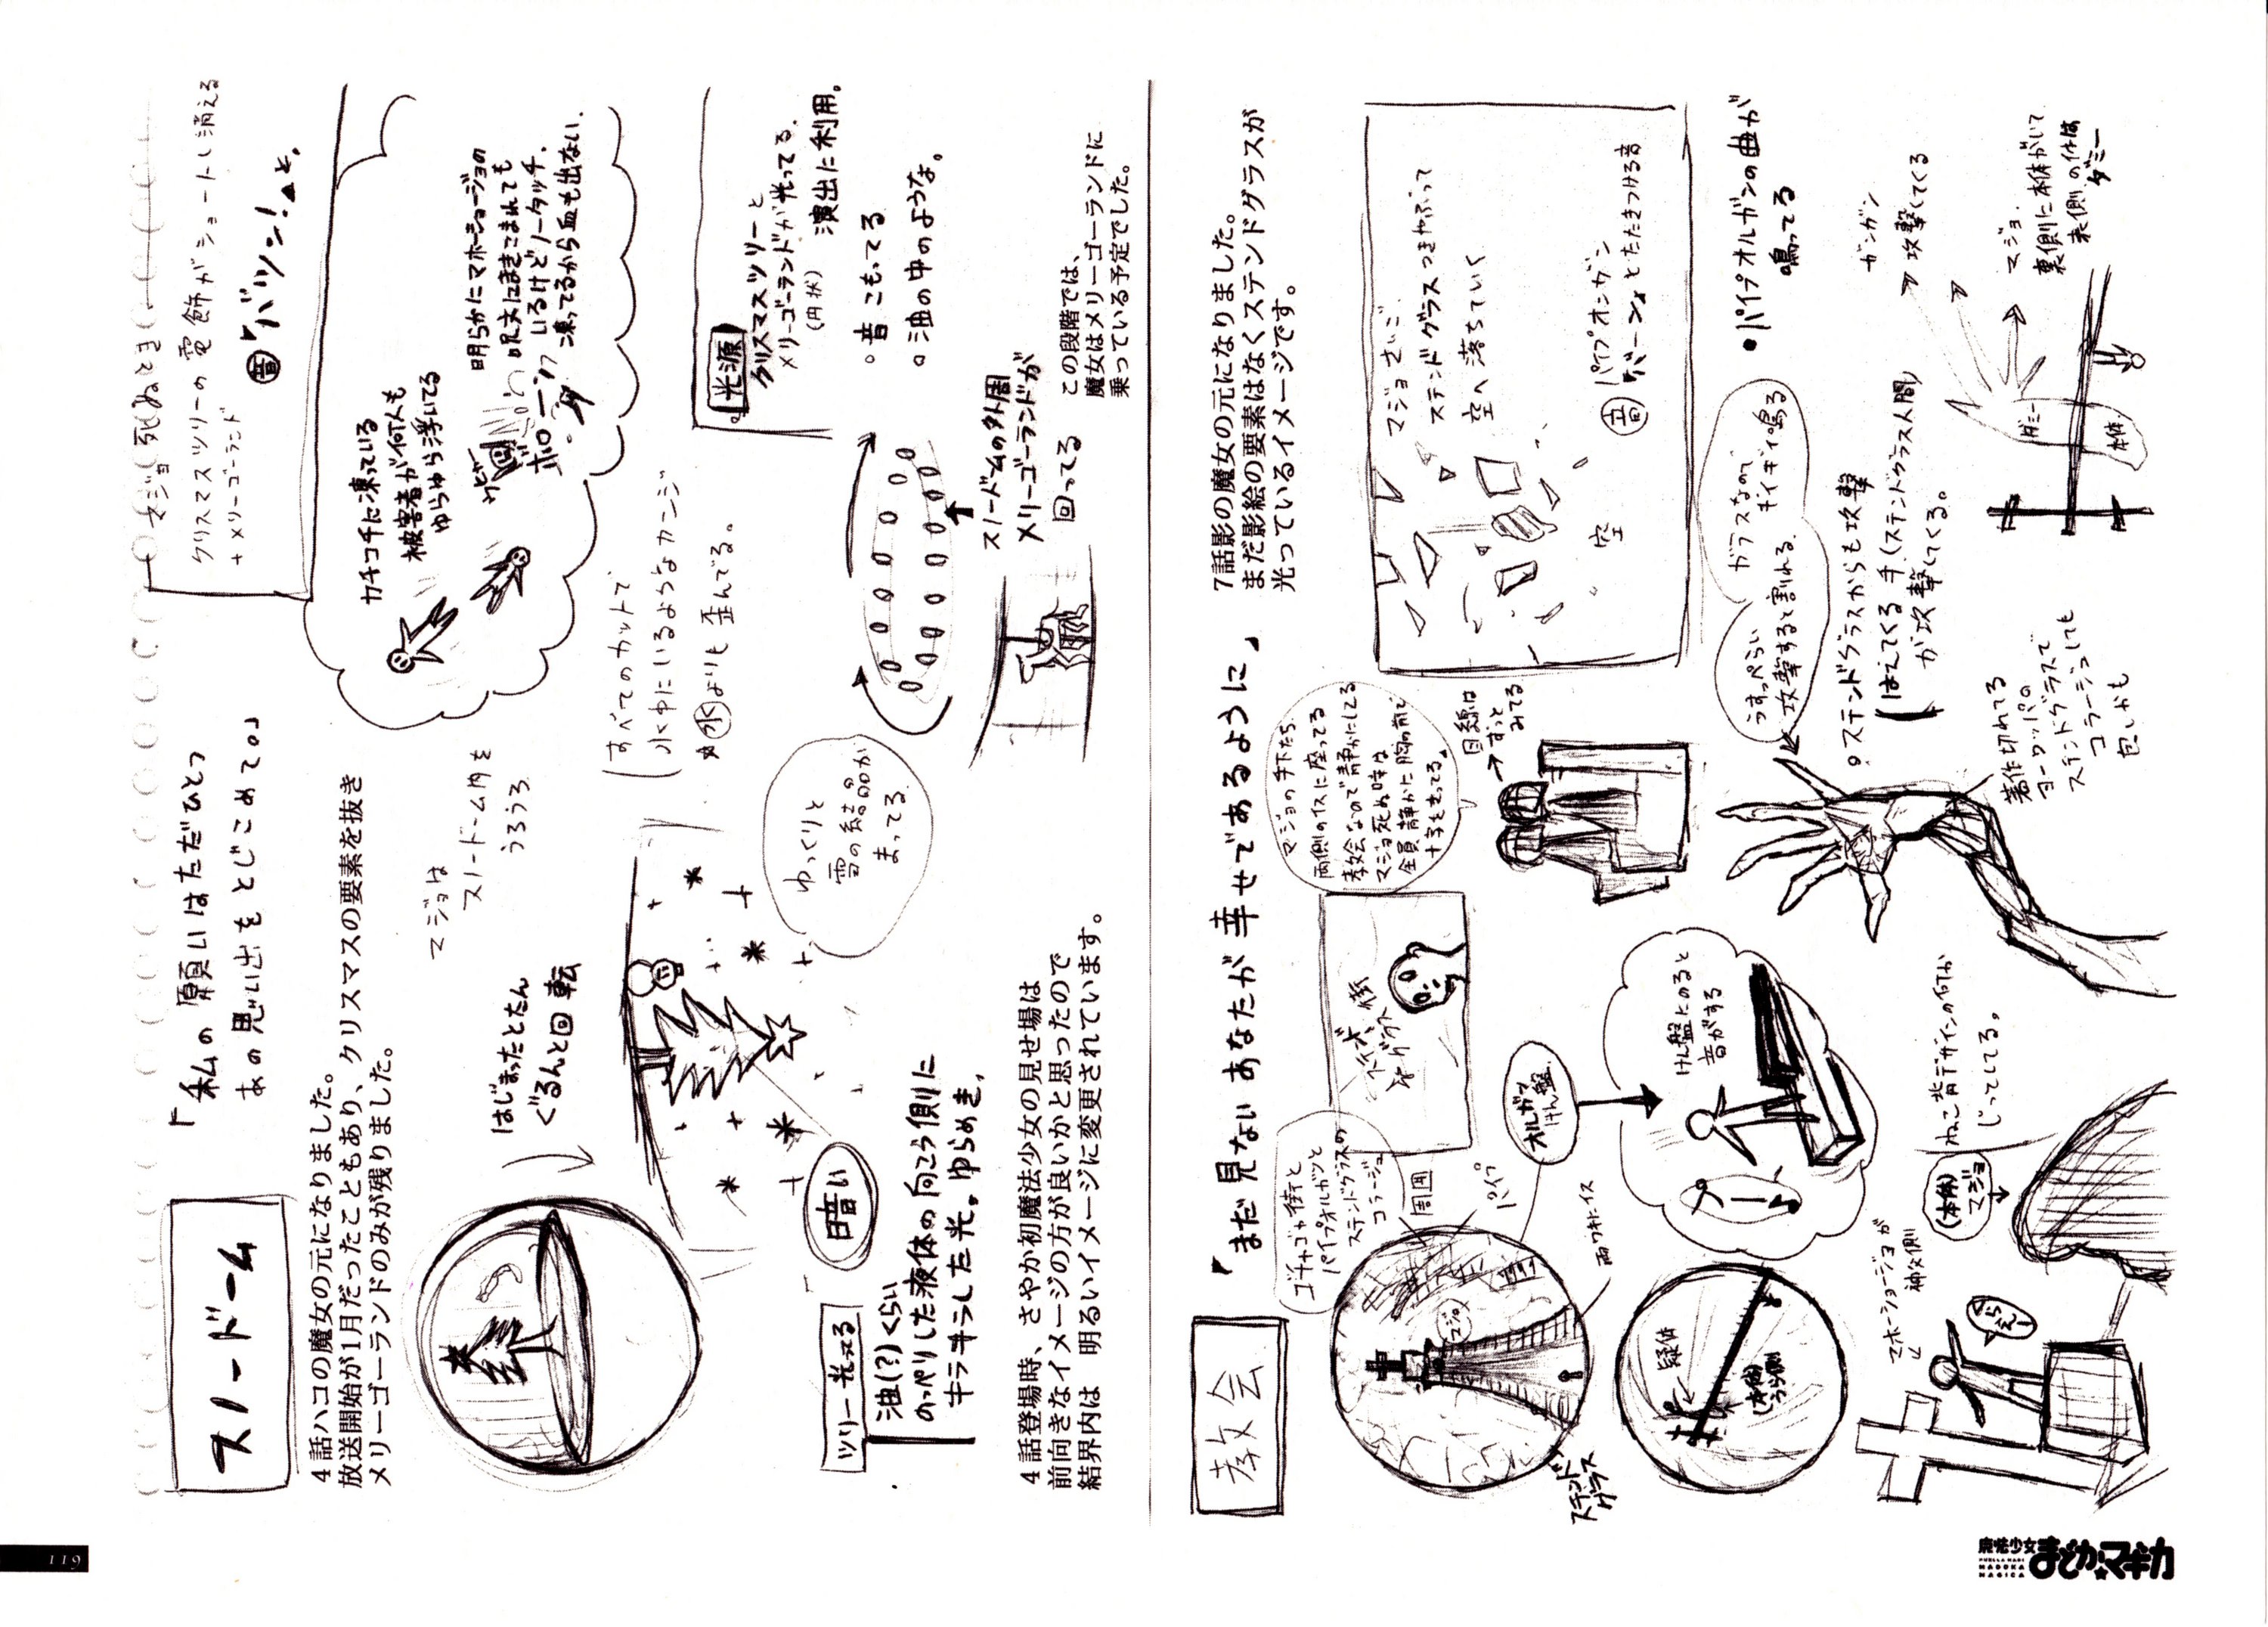 スノードーム
「私の願いはただひとつ
あの思い出をとじこめて。」
マジョ死ぬとき
クリスマスツリーの電飾がショートし消える
+メリーゴーランド
音「バツン!」と。
4話ハコの魔女の元になりました。
放送開始が1月だったこともあり、クリスマスの要素を抜き
メリーゴーランドのみが残りました。
はじまったとたん
ぐるんと回転
マジョは
スノードーム内を
うろうろ
カチコチに凍っている
被害者が何人も
ゆらゆら浮いてる
明らかにマホーショージョの
呪文にまきこまれても
いるけどノータッチ、
凍ってるから血も出ない.
ウヒャー
ボローン
すべてのカットで
水中にいるようなカンジ
水よりも歪んでる。
ゆっくりと
雪の結晶が
まってる
暗い
ツリー光ってる
油(?)くらい
のっぺりした液体の向こう側に
キラキラした光。ゆらめき。
光源
クリスマスツリーと
メリーゴーランドが光ってる.
(円状)
演出に利用。
音こもってる
油の中のような。
スノードームの外周
メリーゴーランドが
回ってる
この段階では、
魔女はメリーゴーランドに
乗っている予定でした。
4話登場時、さやか初魔法少女の見せ場は
前向きなイメージの方が良いかと思ったので
結界内は 明るいイメージに変更されています。
教会
「まだ見ないあなたが幸せであるように」
7話影の魔女の元になりました。
まだ影絵の要素はなくステンドグラスが
光っているイメージです。
ゴチャゴチャ街と
パイプオルガンと
ステンドグラスの
コラージュ
周囲
パイプ
両ワキにイス
マジョ
ステンド
グラス
マジョの手下たち.
両側のイスに座ってる
教会なので静かにしてる
マジョ死ぬ時は
全員静かに胸の前で
十字を走ってる。
目線は
ずっと
みてる
マジョさいご.
ステンドグラスつきやぶって
空へ落ちていく
空
音 パイプオンガン
「バーン」とたたきつける音
オルガン
けん盤
けん盤にのると
音がする
疑体
(本体)
うら側
マホーショージョが
神父側
くらえー!
(本体)
マジョ
ねこ背デザインの何か
じっとしてる。
うすっぺらい
攻撃すると割れる.
ガラスなので
ギイギイ鳴る
ステンドグラスからも攻撃
はえてくる手(ステンドグラス人間)
が攻撃してくる。
著作切れてる
ヨーロッパの
ステインドグラスで
コラージュしても
良いかも
パイプオルガンの曲が
鳴ってる
ガンガン
攻撃してくる
ダミー
本体
マジョ.
裏側に本体がいて
表側の体は
ダミー
119
魔法少女
まどか☆マギカ
PUELLA MAGI
MADOKA
MAGICA